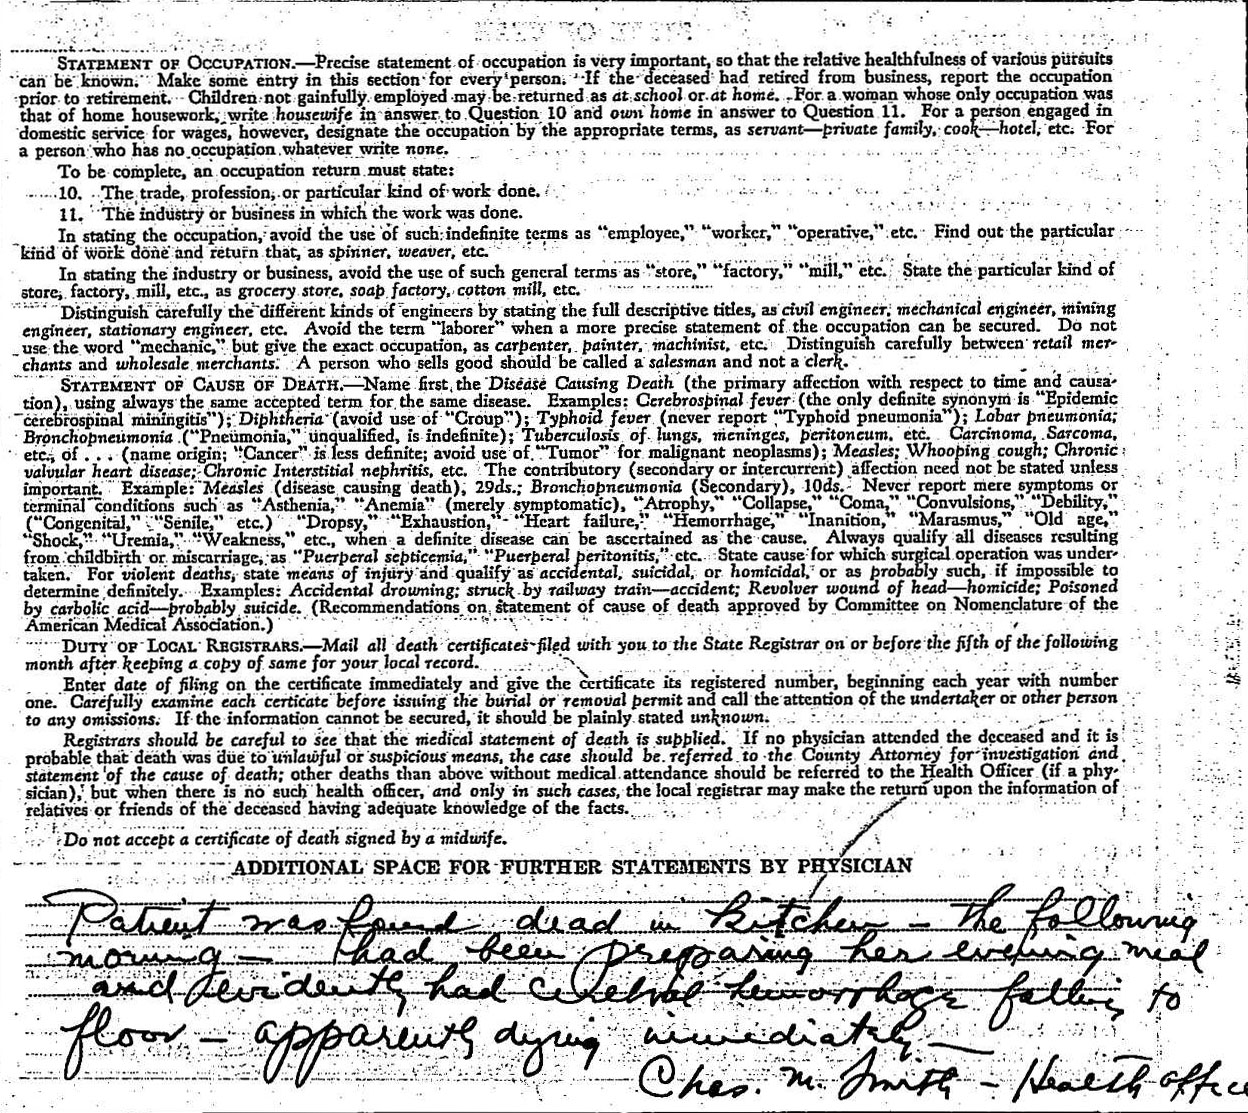 STATEMENT OF OCCUPATION.—Precise statement of occupation is very important, so that the relative healthfulness of various pursuits
can be known. Make some entry in this section for every person. If the deceased had retired from business, report the occupation
prior to retirement. Children not gainfully employed may be returned as at school or at home. For a woman whose only occupation was
that of home housework, write housewife in answer to Question 10 and own home in answer to Question 11. For a person engaged in
domestic service for wages, however, designate the occupation by the appropriate terms, as servant—private family, cook—hotel, etc. For
a person who has no occupation whatever write none.
To be complete, an occupation return must state:
10. The trade, profession, or particular kind of work done.
11. The industry or business in which the work was done.
In stating the occupation, avoid the use of such indefinite terms as "employee," "worker," "operative," etc. Find out the particular
kind of work done and return that, as spinner, weaver, etc.
In stating the industry or business, avoid the use of such general terms as "store," "factory," "mill," etc. State the particular kind of
store, factory, mill, etc., as grocery store, soap factory, cotton mill, etc.
Distinguish carefully the different kinds of engineers by stating the full descriptive titles, as civil engineer, mechanical engineer, mining
engineer, stationary engineer, etc. Avoid the term "laborer" when a more precise statement of the occupation can be secured. Do not
use the word "mechanic," but give the exact occupation, as carpenter, painter, machinist, etc. Distinguish carefully between retail mer-
chants and wholesale merchants. A person who sells good should be called a salesman and not a clerk.
STATEMENT OF CAUSE OF DEATH.—Name first, the Disease Causing Death (the primary affection with respect to time and causa-
tion), using always the same accepted term for the same disease. Examples: Cerebrospinal fever (the only definite synonym is "Epidemic
cerebrospinal miningitis"); Diphtheria (avoid use of "Croup"); Typhoid fever (never report "Typhoid pneumonia"); Lobar pneumonia;
Bronchopneumonia ("Pneumonia," unqualified, is indefinite); Tuberculosis of lungs, meninges, peritoneum, etc. Carcinoma, Sarcoma,
etc., of . . . (name origin; "Cancer" is less definite; avoid use of "Tumor" for malignant neoplasms); Measles; Whooping cough; Chronic
valvular heart disease; Chronic Interstitial nephritis, etc. The contributory (secondary or intercurrent) affection need not be stated unless
important. Example: Measles (disease causing death), 29ds.; Bronchopneumonia (Secondary), 10ds. Never report mere symptoms or
terminal conditions such as "Asthenia," "Anemia" (merely symptomatic), "Atrophy," "Collapse," "Coma," "Convulsions," "Debility,"
("Congenital," "Senile," etc.) "Dropsy," "Exhaustion," "Heart failure," "Hemorrhage," "Inanition," "Marasmus," "Old age,"
"Shock," "Uremia," "Weakness," etc., when a definite disease can be ascertained as the cause. Always qualify all diseases resulting
from childbirth or miscarriage, as "Puerperal septicemia," "Puerperal peritonitis," etc. State cause for which surgical operation was under-
taken. For violent deaths, state means of injury and qualify as accidental, suicidal, or homicidal, or as probably such, if impossible to
determine definitely. Examples: Accidental drowning; struck by railway train—accident; Revolver wound of head—homicide; Poisoned
by carbolic acid—probably suicide. (Recommendations on statement of cause of death approved by Committee on Nomenclature of the
American Medical Association.)
DUTY OF LOCAL REGISTRARS.—Mail all death certificates filed with you to the State Registrar on or before the fifth of the following
month after keeping a copy of same for your local record.
Enter date of filing on the certificate immediately and give the certificate its registered number, beginning each year with number
one. Carefully examine each certicate before issuing the burial or removal permit and call the attention of the undertaker or other person
to any omissions. If the information cannot be secured, it should be plainly stated unknown.
Registrars should be careful to see that the medical statement of death is supplied. If no physician attended the deceased and it is
probable that death was due to unlawful or suspicious means, the case should be referred to the County Attorney for investigation and
statement of the cause of death; other deaths than above without medical attendance should be referred to the Health Officer (if a phy-
sician), but when there is no such health officer, and only in such cases, the local registrar may make the return upon the information of
relatives or friends of the deceased having adequate knowledge of the facts.
Do not accept a certificate of death signed by a midwife.
ADDITIONAL SPACE FOR FURTHER STATEMENTS BY PHYSICIAN
Patient was found dead in kitchen – the following
morning – had been preparing her evening meal
and evidently had cerebral hemorrhage falling to
floor – apparently dying immediately –
Chas. M. Smith – Health office